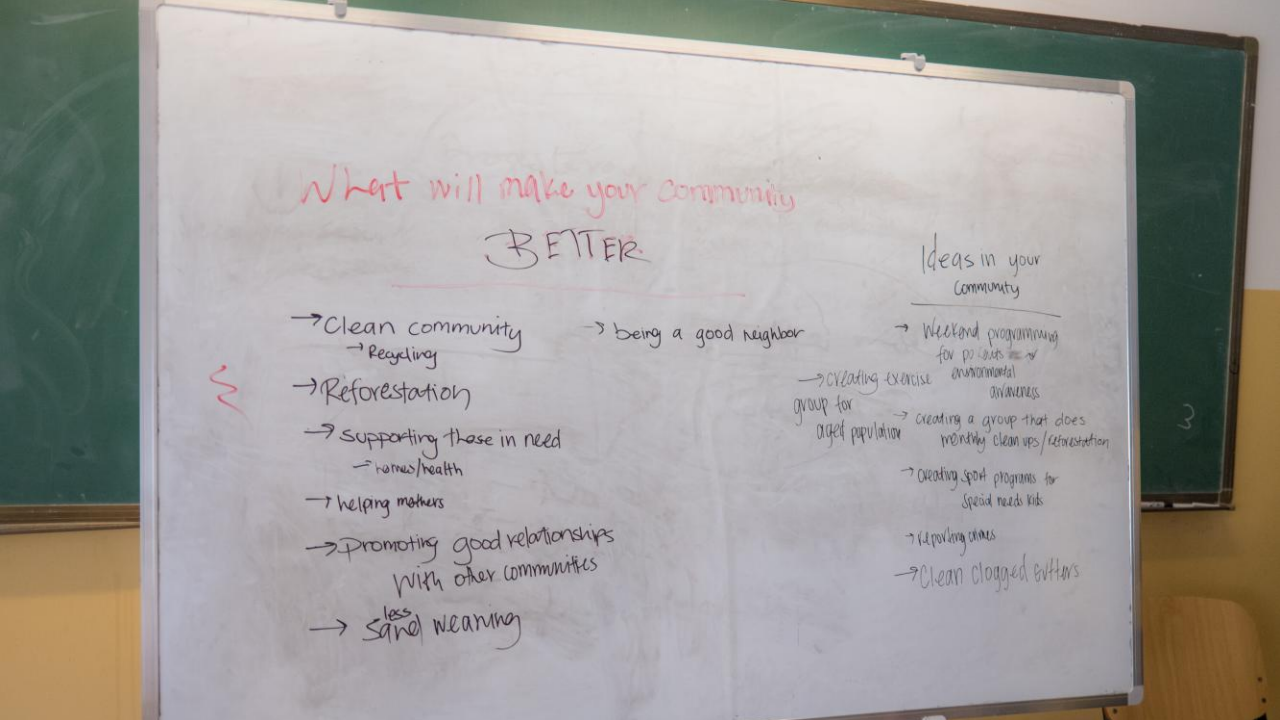 What will make your community
BETTER
→ Clean community
→ Recycling
→ Reforestation
→ Supporting those in need
→ homes/health
→ helping mothers
→ Promoting good relationships
with other communities
less
→ Sand weaning
→ being a good neighbor
Ideas in your
community
→ Weekend programming
for
environmental
awareness
→ creating exercise
group for
aged population
→ creating a group that does
monthly clean ups/reforestation
→ creating sport programs for
special needs kids
→ reporting crimes
→ Clean clogged gutters
3